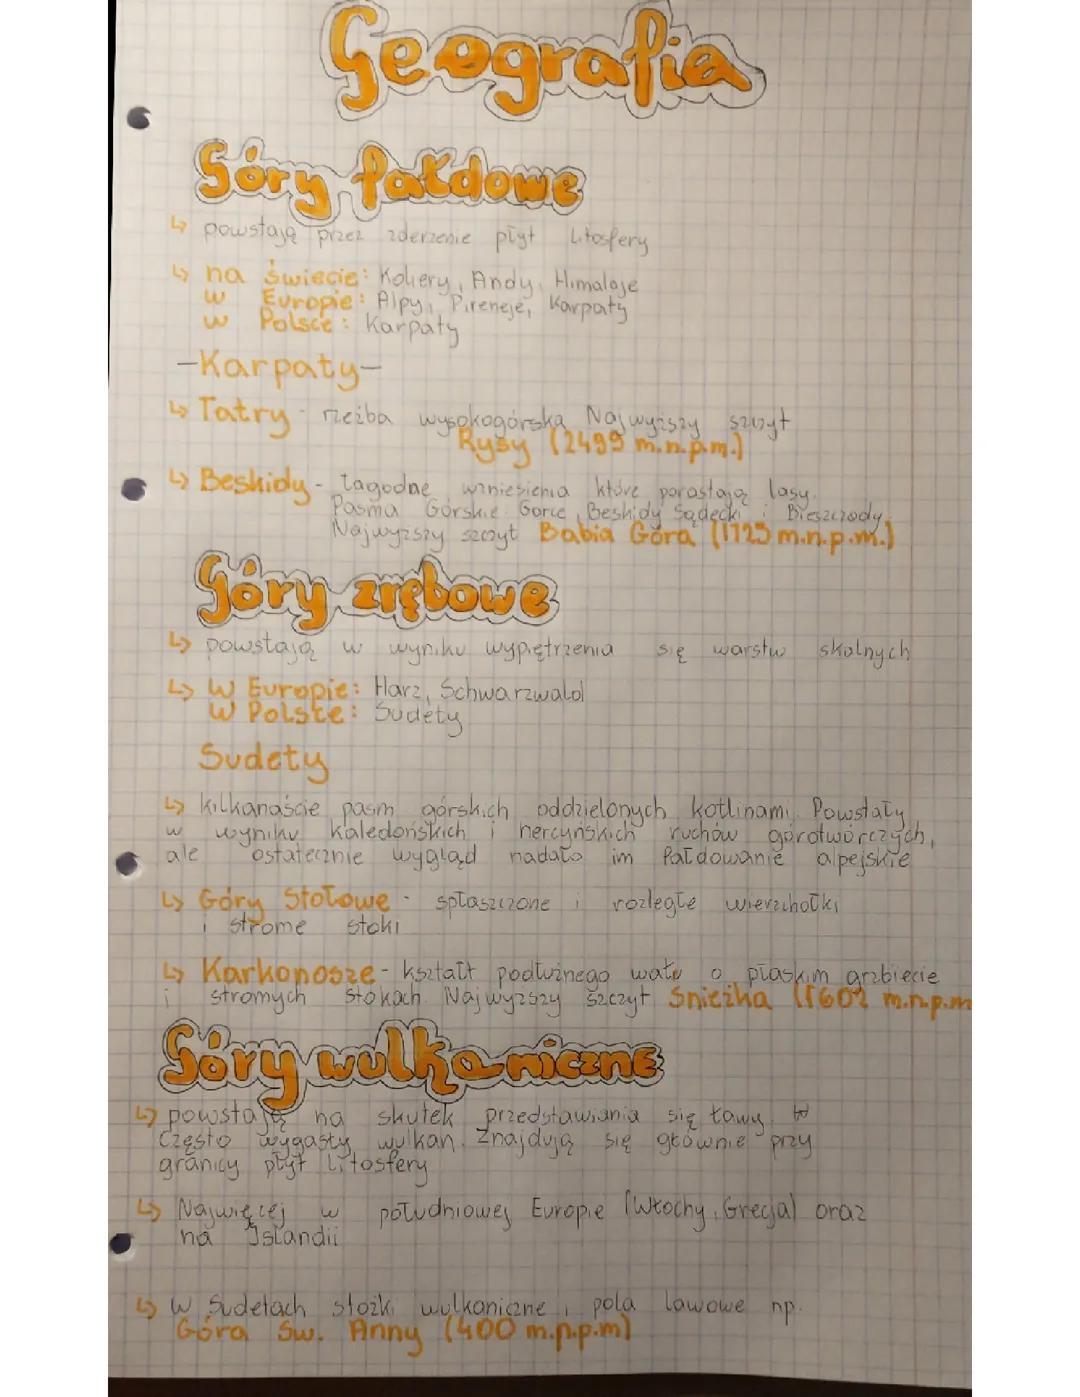 Geografia
Góry fałdowe
↳ powstają przez zderzenie płyt litosfery
↳ na świecie: Koliery, Andy, Himalaje
w Europie: Alpy, Pireneje, Karpaty
w Polsce: Karpaty
-Karpaty-
↳ Tatry - rzeźba wysokogórska Najwyższy szczyt
Rysy (2499 m.n.p.m.)
↳ Beskidy - łagodne wzniesienia które porastają lasy.
Pasma Górskie Gorce, Beskidy Sądecki i Bieszczady.
Najwyższy szczyt Babia Góra (1725 m.n.p.m.)
Góry zrębowe
↳ powstają w wyniku wypiętrzenia się warstw skalnych
↳ W Europie: Harz, Schwarzwald
W Polsce: Sudety
Sudety
↳ kilkanaście pasm górskich oddzielonych kotlinami. Powstały
w wyniku kaledońskich i hercyńskich ruchów górotwórczych,
ale ostatecznie wygląd nadało im fałdowanie alpejskie
↳ Góry Stołowe - spłaszczone i rozległe wierzchołki
i strome stoki
↳ Karkonosze - kształt podłużnego wału o płaskim grzbiecie
i stromych stokach. Najwyższy szczyt Śnieżka (1602 m.n.p.m
Góry wulkaniczne
↳ powstają na skutek przedstawiania się ławy.
Często wygasły wulkan. Znajdują się głównie przy
granicy płyt litosfery
↳ Najwięcej w południowej Europie (Włochy, Grecja) oraz
na Islandii
↳ W Sudetach stożki wulkaniczne, pola lawowe np.
Góra Św. Anny (400 m.n.p.m)